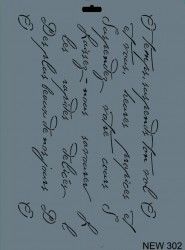 O temps, suspends ton vol
Et vous, heures propices
Suspendez votre cours
Laissez-nous savourer
les rapides délices
Des plus beaux de nos jours
NEW 302